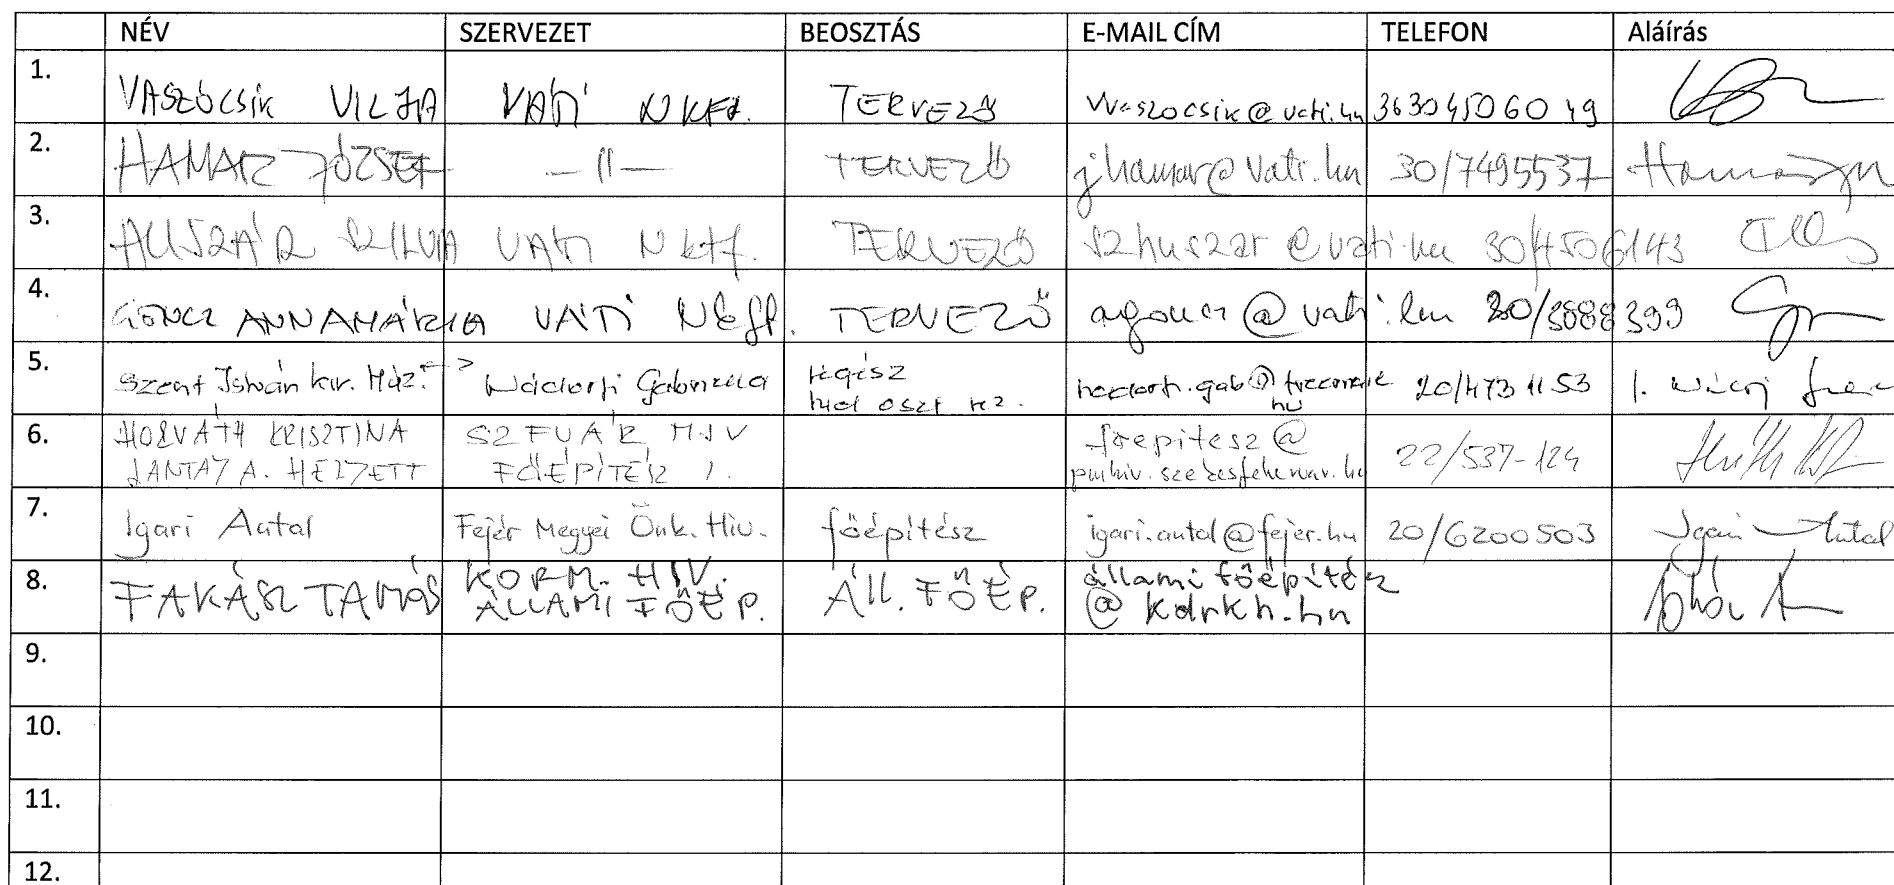 NÉV SZERVEZET BEOSZTÁS E-MAIL CÍM TELEFON Aláírás
1. VASZÓCSIK VILJA VÁTI NKft. TERVEZŐ vvaszocsik@vati.hu 36304506049
2. HAMAR JÓZSEF —ıı— TERVEZŐ jhamar@vati.hu 30/7495537
3. HUSZÁR SZILVIA VÁTI NKft. TERVEZŐ szhuszar@vati.hu 30/4506143
4. GÖNCZ ANNAMÁRIA VÁTI NKft. TERVEZŐ agoncz@vati.hu 30/3088399
5. Szent István kir. Múz. Nádorfi Gabriella régész 20/473 11 53
oszt
hu
6. HORVÁTH KRISZTINA SZFVÁR MJV főépítész@ 22/537-124
LANTAY A. HELYETT FŐÉPÍTÉSZ I. pmhiv.szekesfehervar.hu
7. Igari Antal Fejér Megyei Önk. Hiv. főépítész igari.antal@fejer.hu 20/6200503 Igari Antal
8. FAKÁSZ TAMÁS KORM. HIV. ÁLL. FŐÉP. állami főépítész
ÁLLAMI FŐÉP. @kdrkh.hu
9.
10.
11.
12.